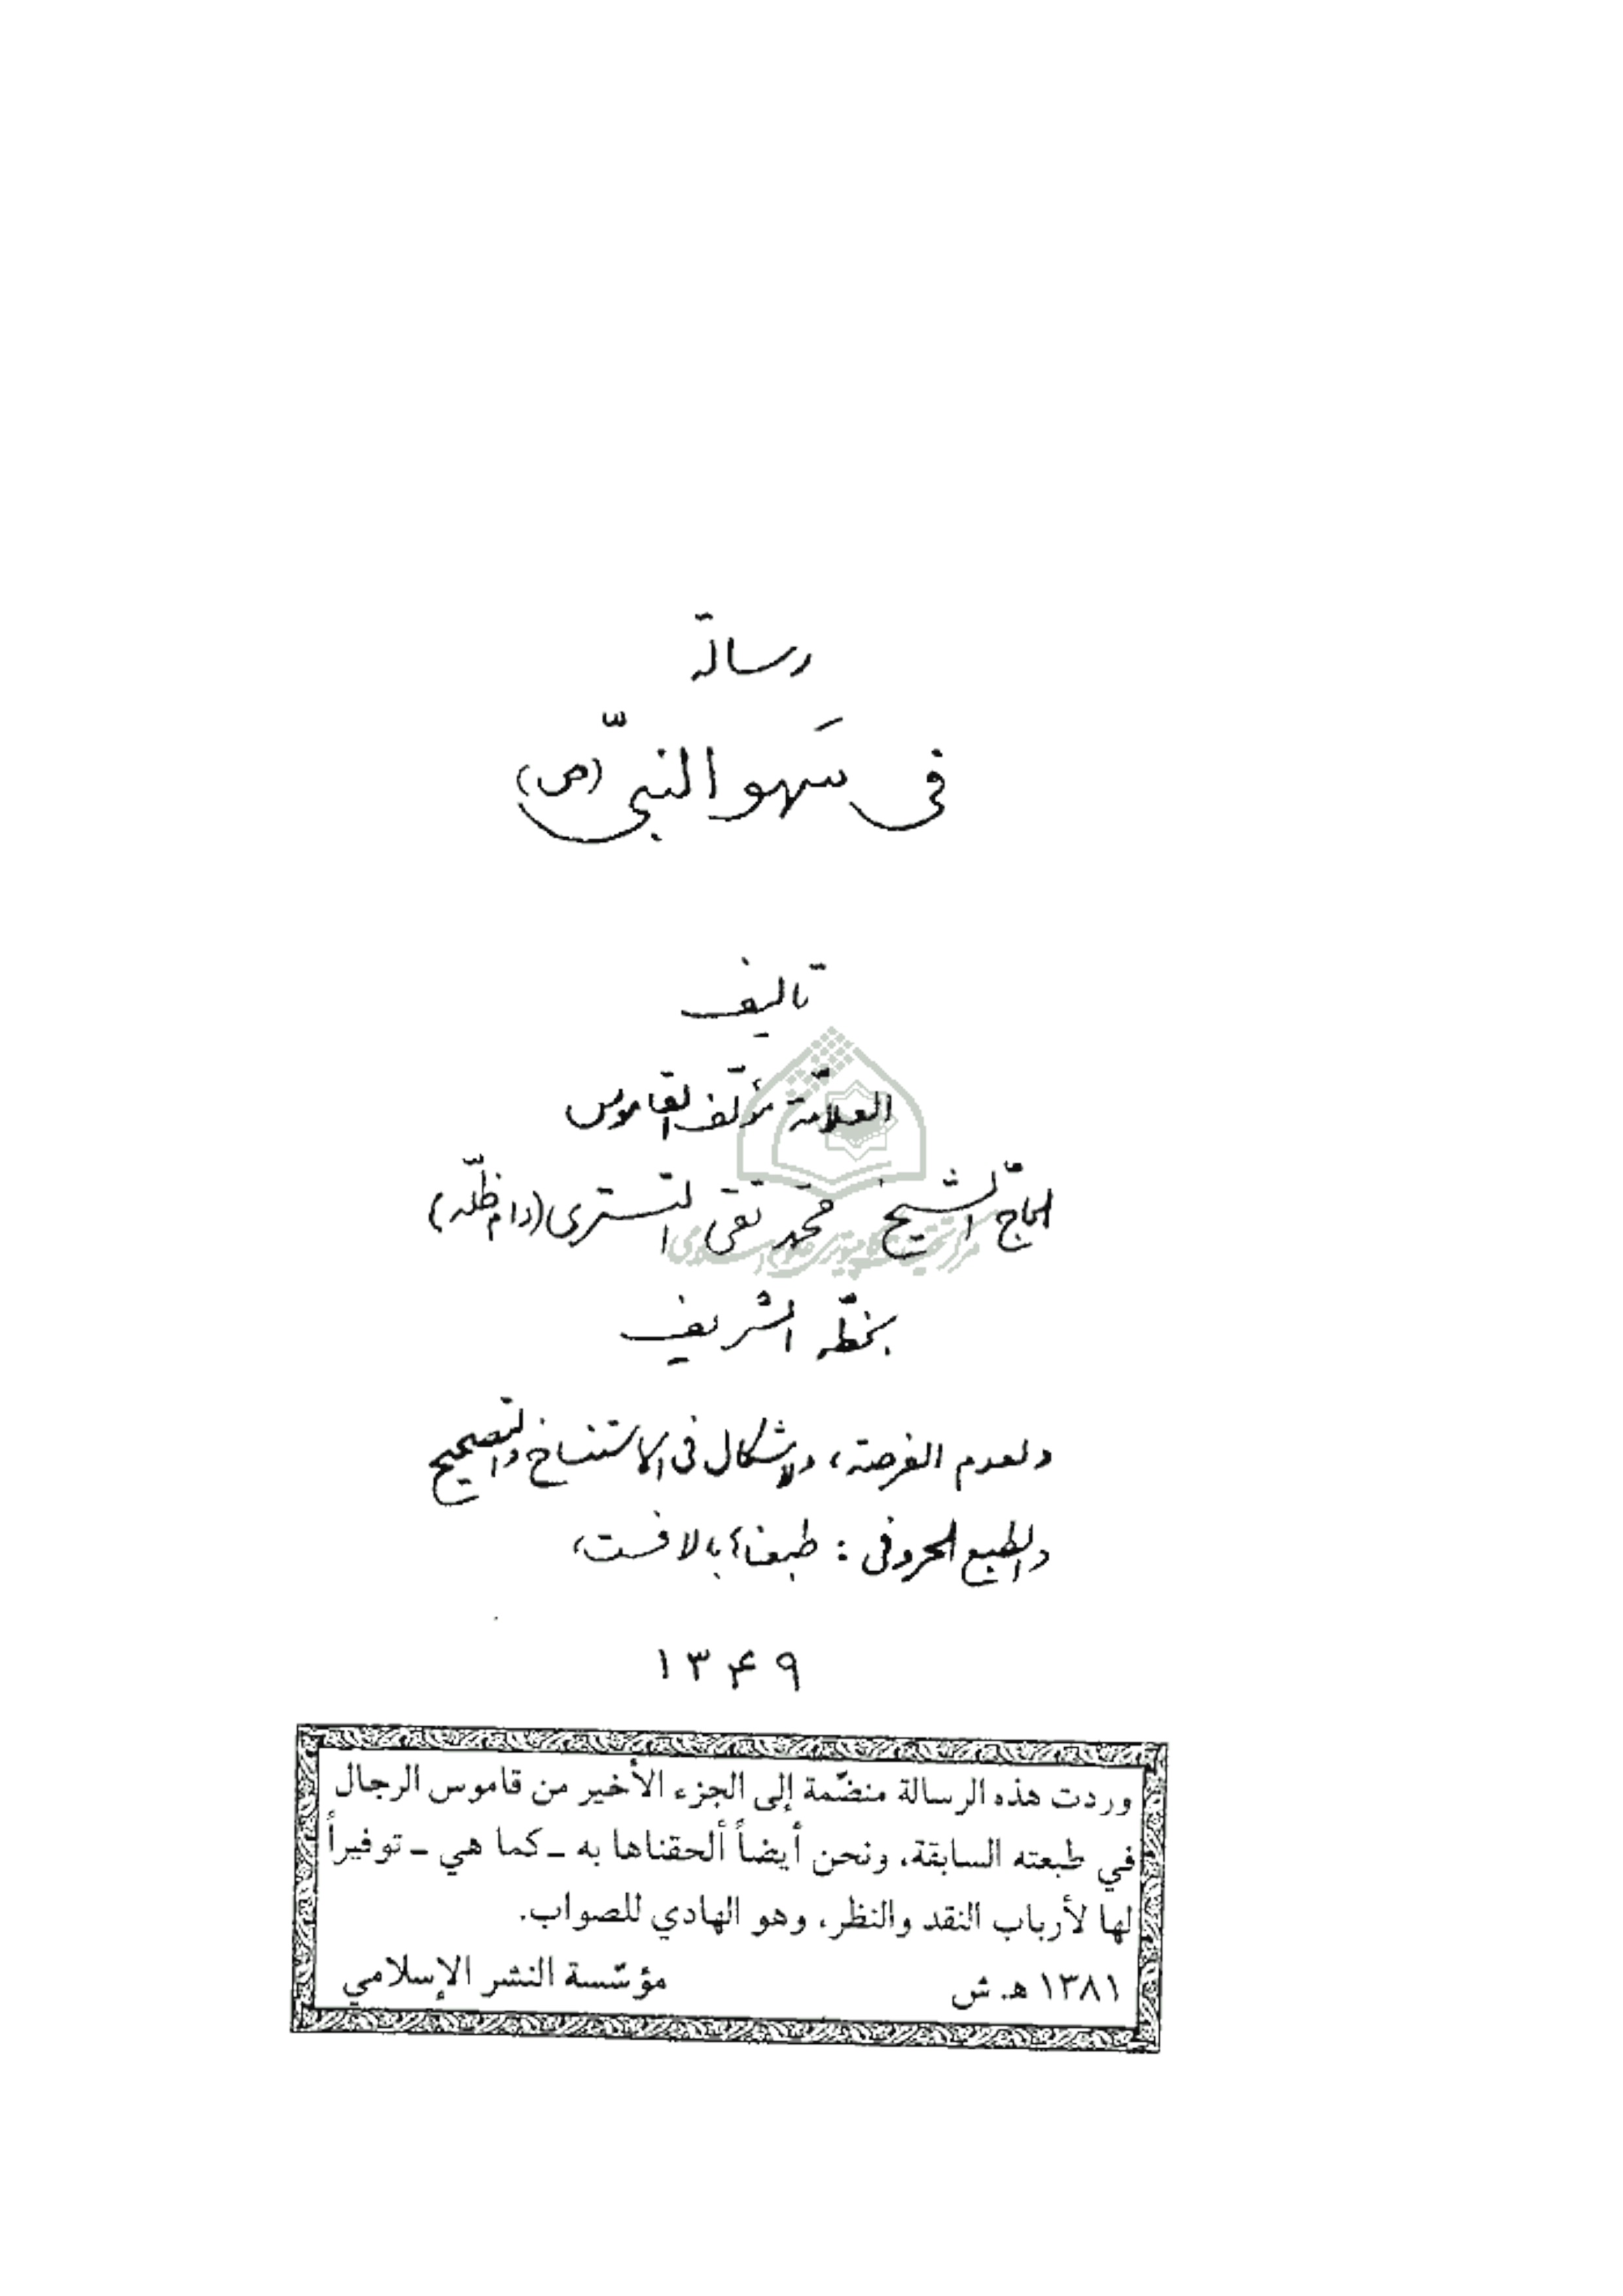 رسالة
فى سَهو النبىّ (ص)
تاليف
العلّامة مؤلّف القاموس
الحاجّ الشيخ محمد تقى التسترى (دام ظلّه)
بخطّه الشريف
ولعدم الفرصة، والاشكال فى الاستنساخ والتصحيح
والطبع الحروفى : طبعناه بالافست،
١٣۴٩
وردت هذه الرسالة منضّمة إلى الجزء الأخير من قاموس الرجال
في طبعته السابقة، ونحن أيضاً ألحقناها به ـ كما هي ـ توفيراً
لها لأرباب النقد والنظر، وهو الهادي للصواب.
١٣٨١ هـ. ش مؤسّسة النشر الإسلامي